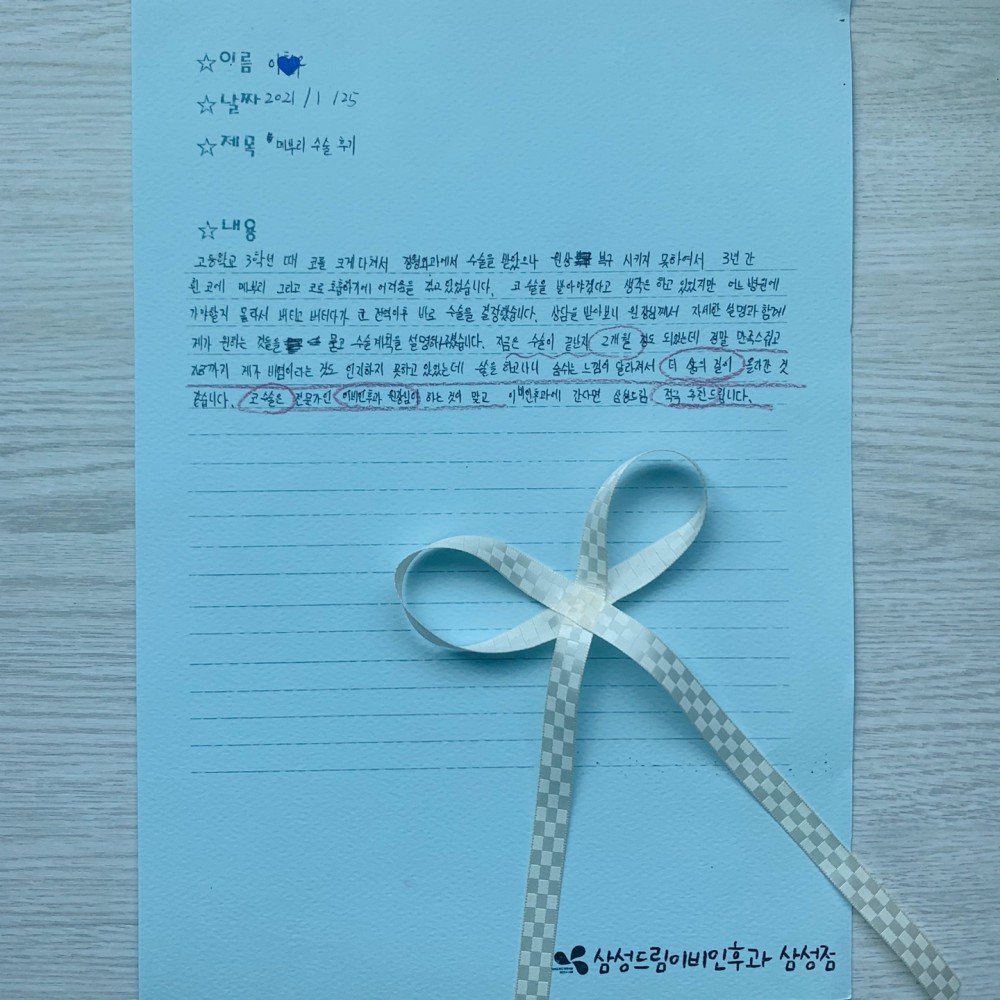 ☆이름 이
☆날짜 2021/1/25
☆제목 메부리 수술 후기
☆내용
고등학교 3학년 때 코를 크게 다쳐서 정형외과에서 수술을 받았으나 원상 복구 시키지 못하여서 3년간
휜 코에 메부리 그리고 코로 호흡하기에 어려움을 겪고 있었습니다. 코 수술을 받아야겠다고 생각은 하고 있었지만 어느 병원에
가야할지 몰라서 버티고 버티다가 전역이후 바로 수술을 결정했습니다. 상담을 받아보니 원장님께서 자세한 설명과 함께
제가 원하는 것들을 묻고 수술계획을 설명하셨습니다. 지금은 수술이 끝난지 2개월 정도 되었는데 정말 만족스럽고
지금까지 제가 비염이라는 것도 인지하지 못하고 있었는데 수술을 하고나니 숨쉬는 느낌이 달라져서 더 삶의 질이 올라간 것
같습니다. 코 수술은 전문가인 이비인후과 원장님이 하는 것이 맞고 이비인후과에 간다면 삼성드림 적극 추천드립니다.
삼성드림이비인후과 삼성점